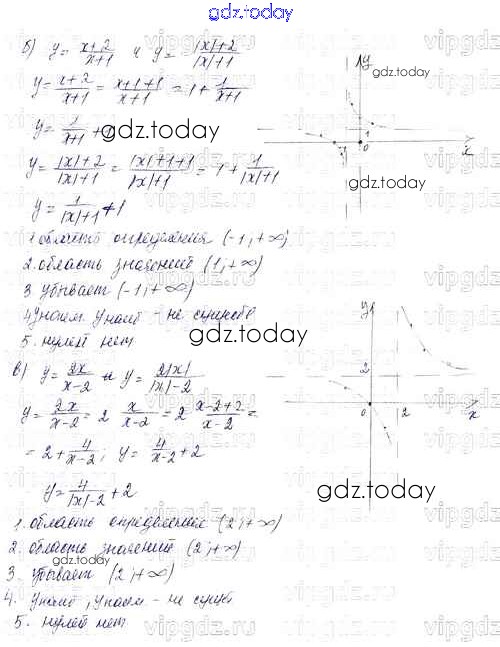 gdz.today
б) y = x+2/x+1 и y = |x|+2/|x|+1
y = x+2/x+1 = x+1+1/x+1 = 1 + 1/x+1
y = 1/x+1 + 1
y = |x|+2/|x|+1 = |x|+1+1/|x|+1 = 1 + 1/|x|+1
y = 1/|x|+1 + 1
1. область определения (-1; +∞)
2. область значений (1; +∞)
3 убывает (-1; +∞)
4 yнаим yнаиб - не существ
5. нулей нет
в) y = 2x/x-2 и y = 2|x|/|x|-2
y = 2x/x-2 = 2 x/x-2 = 2 x-2+2/x-2 =
= 2 + 4/x-2; y = 4/x-2 + 2
y = 4/|x|-2 + 2
1. область определения (2; +∞)
2. область значений (2; +∞)
3. убывает (2; +∞)
4. yнаиб, yнаим - не сущ
5. нулей нет
y
1
-1
0
x
y
2
0
2
x
gdz.today
gdz.today
gdz.today
gdz.today
gdz.today
gdz.today
gdz.today
vipgdz.ru